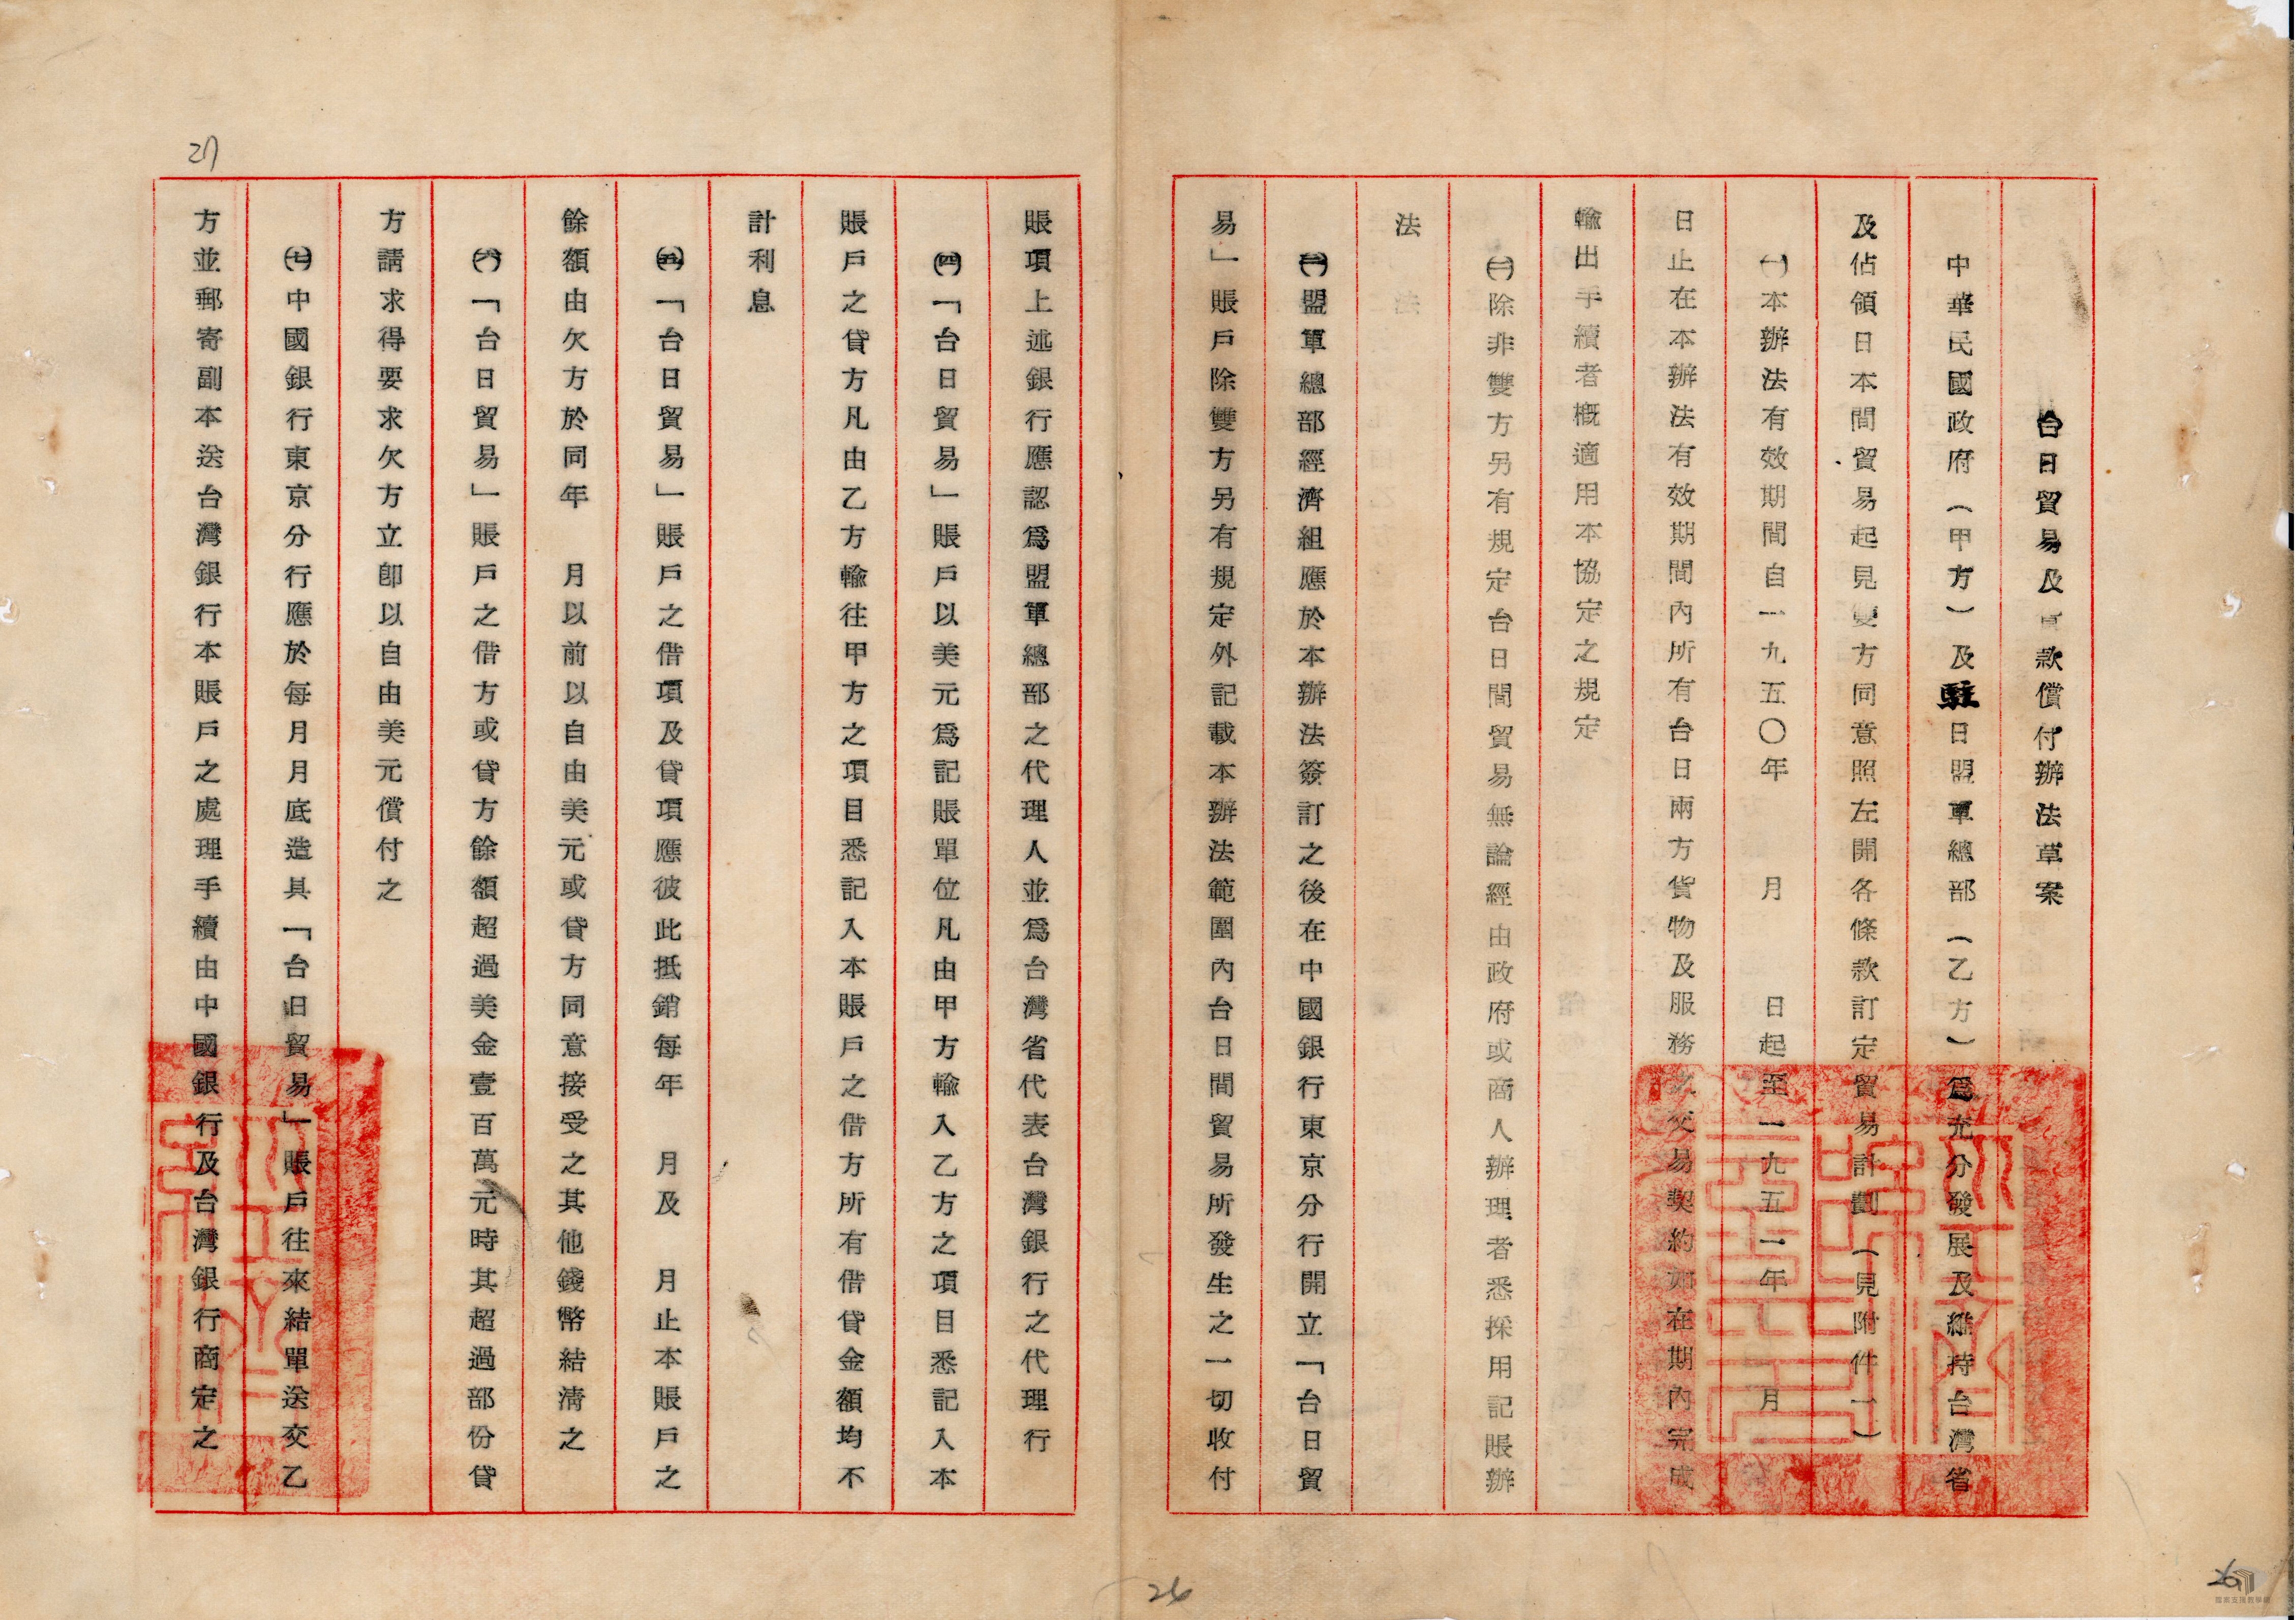 台日貿易及貨款償付辦法草案
中華民國政府（甲方）及駐日盟軍總部（乙方）爲充分發展及維持台灣省
及佔領日本間貿易起見雙方同意照左開各條款訂定貿易計劃（見附件一）
㈠本辦法有效期間自一九五〇年　月　日起至一九五一年　月
日止在本辦法有效期間內所有台日兩方貨物及服務之交易契約如在期內完成
輸出手續者概適用本協定之規定
㈡除非雙方另有規定台日間貿易無論經由政府或商人辦理者悉採用記賬辦
法
㈢盟軍總部經濟組應於本辦法簽訂之後在中國銀行東京分行開立「台日貿
易」賬戶除雙方另有規定外記載本辦法範圍內台日間貿易所發生之一切收付
賬項上述銀行應認爲盟軍總部之代理人並爲台灣省代表台灣銀行之代理行
㈣「台日貿易」賬戶以美元爲記賬單位凡由甲方輸入乙方之項目悉記入本
賬戶之貸方凡由乙方輸往甲方之項目悉記入本賬戶之借方所有借貸金額均不
計利息
㈤「台日貿易」賬戶之借項及貸項應彼此抵銷每年　月及　月止本賬戶之
餘額由欠方於同年　月以前以自由美元或貸方同意接受之其他錢幣結清之
㈥「台日貿易」賬戶之借方或貸方餘額超過美金壹百萬元時其超過部份貸
方請求得要求欠方立即以自由美元償付之
㈦中國銀行東京分行應於每月月底造具「台日貿易」賬戶往來結單送交乙
方並郵寄副本送台灣銀行本賬戶之處理手續由中國銀行及台灣銀行商定之
27
26